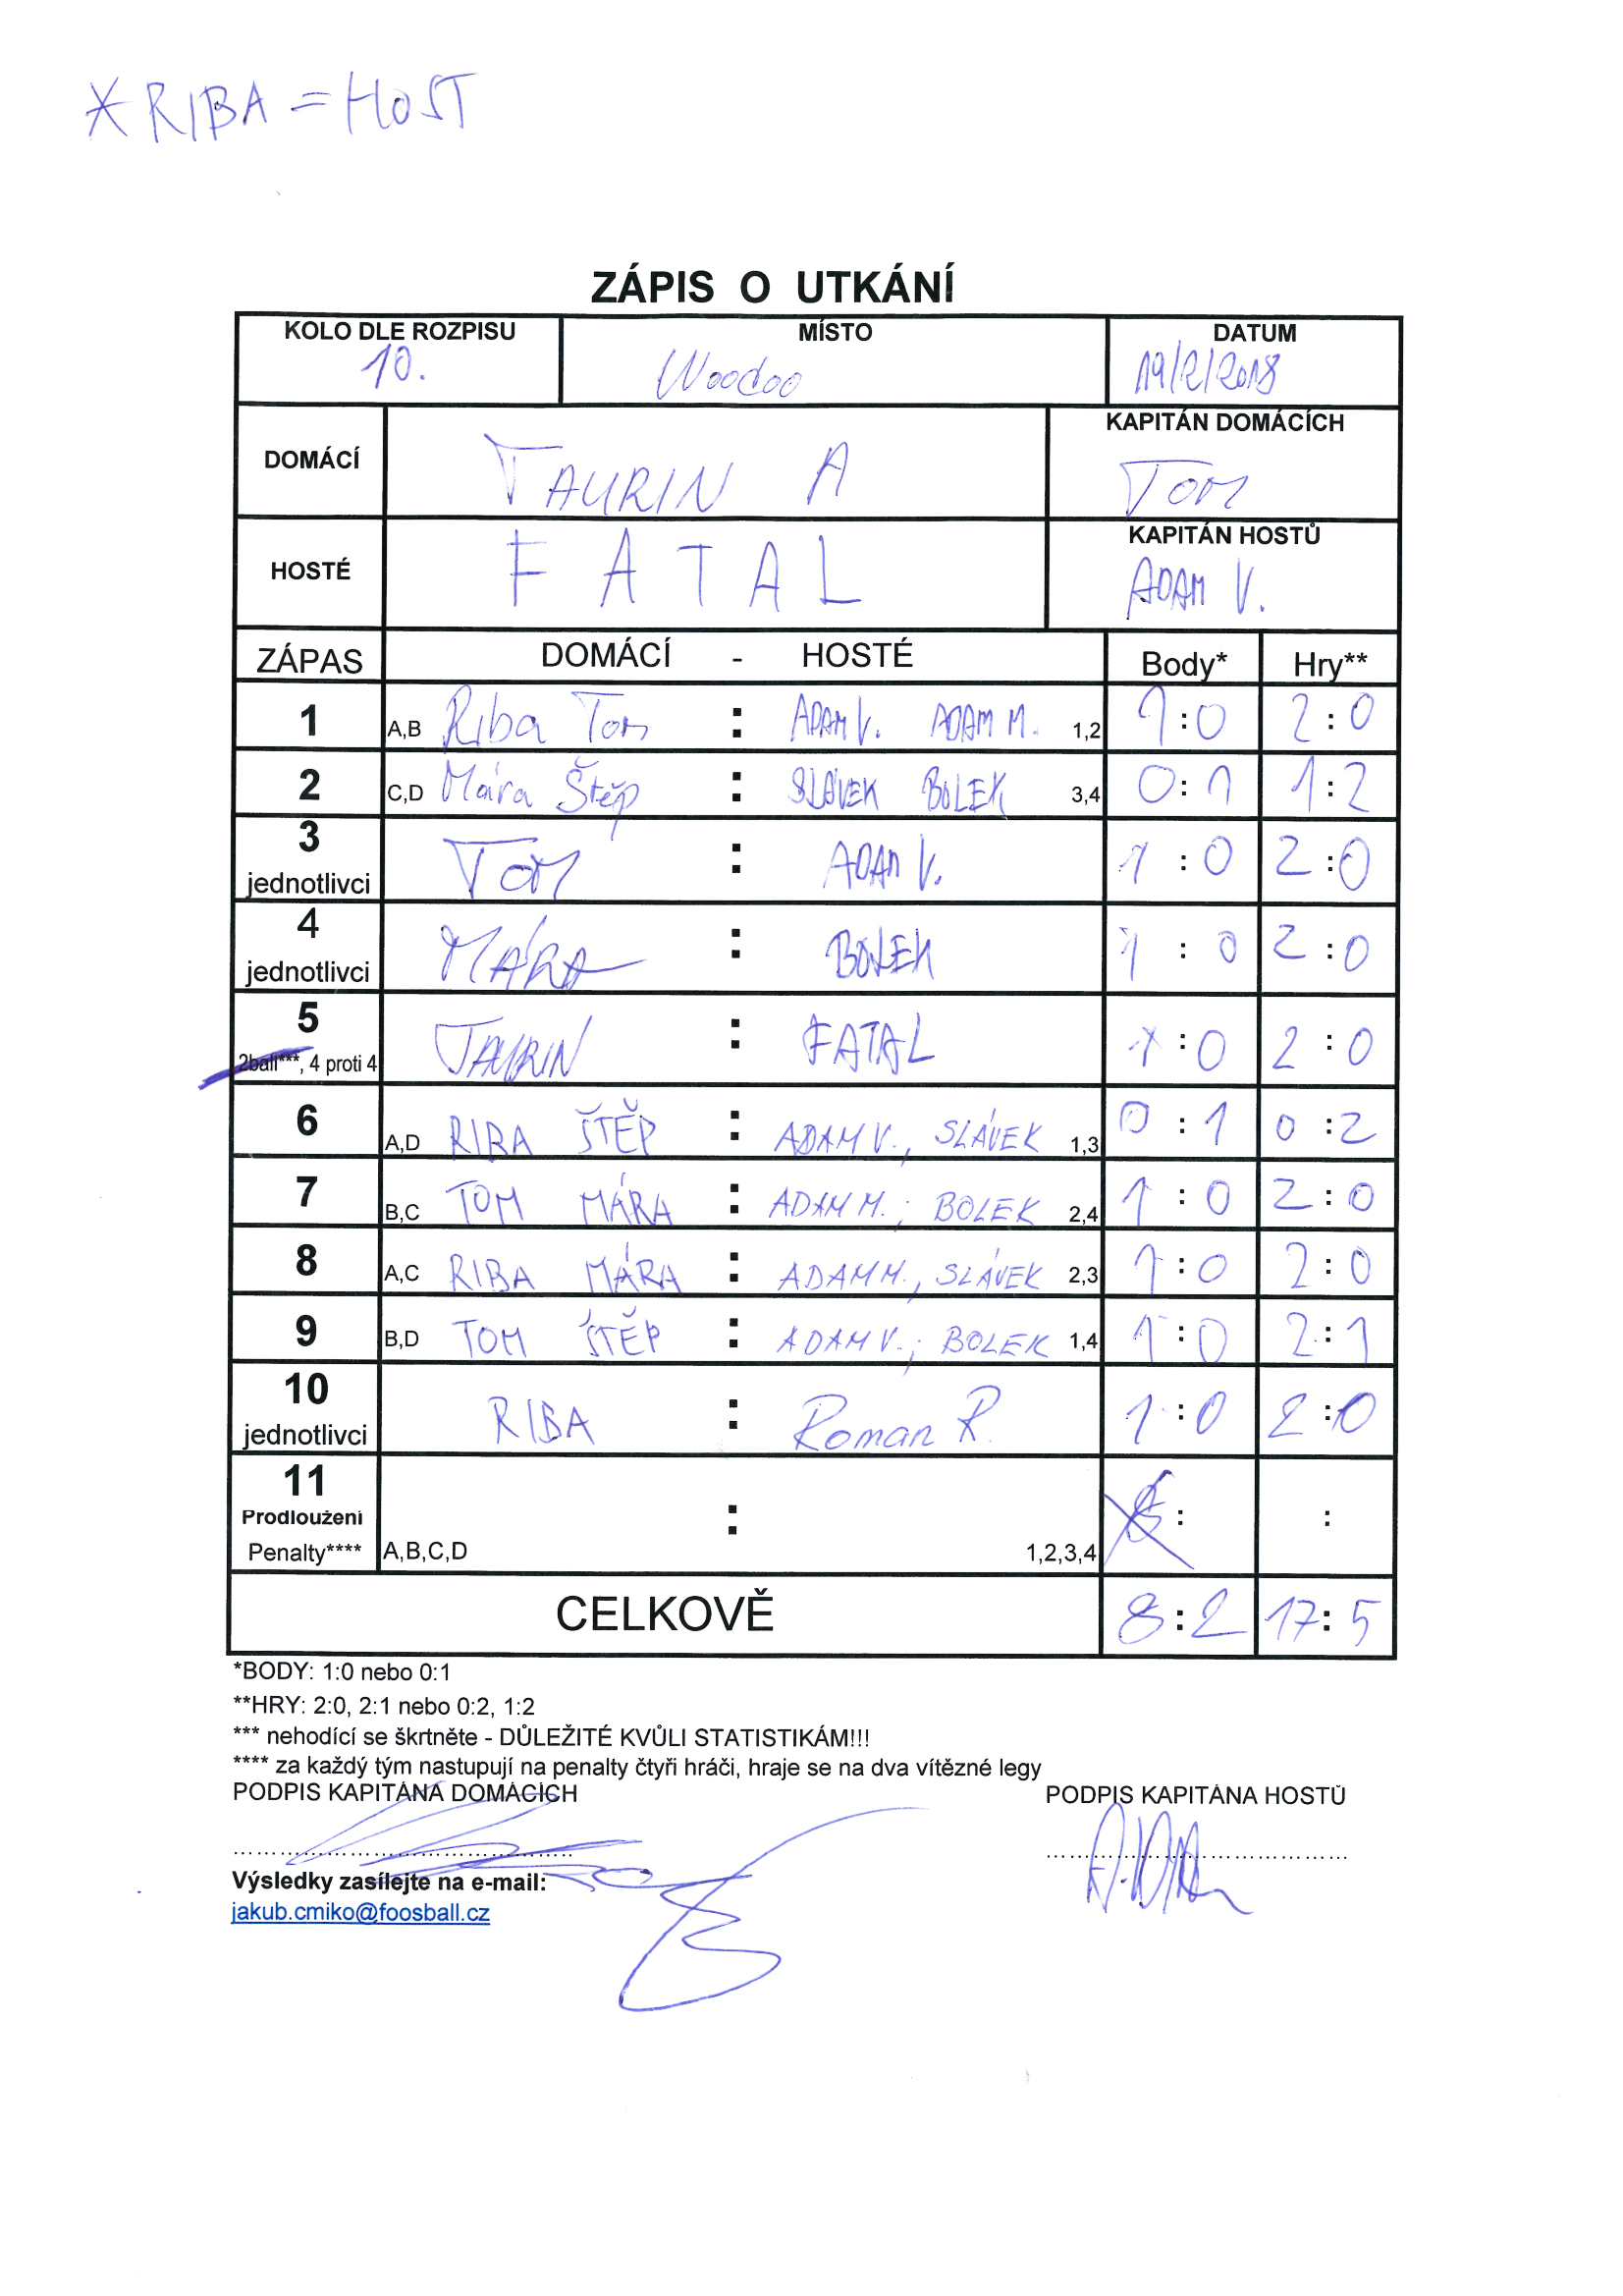 * RIBA = HOST
ZÁPIS O UTKÁNÍ
KOLO DLE ROZPISU MÍSTO DATUM
10. Woodoo 19/2/2018
DOMÁCÍ TAURIN A KAPITÁN DOMÁCÍCH TOM
HOSTÉ FATAL KAPITÁN HOSTŮ ADAM V.
ZÁPAS DOMÁCÍ - HOSTÉ Body* Hry**
1 A,B Riba Tom : ADAM V. ADAM M. 1,2 1:0 2:0
2 C,D Mára Štěp : SLÁVEK BOLEK 3,4 0:1 1:2
3 jednotlivci TOM : ADAM V. 1:0 2:0
4 jednotlivci MÁRA : BOLEK 1:0 2:0
5 2ball***, 4 proti 4 TAURIN : FATAL 1:0 2:0
6 A,D RIBA ŠTĚP : ADAM V., SLÁVEK 1,3 0:1 0:2
7 B,C TOM MÁRA : ADAM M.; BOLEK 2,4 1:0 2:0
8 A,C RIBA MÁRA : ADAM M., SLÁVEK 2,3 1:0 2:0
9 B,D TOM ŠTĚP : ADAM V.; BOLEK 1,4 1:0 2:1
10 jednotlivci RIBA : Roman R. 1:0 2:0
11 Prodloužení Penalty**** A,B,C,D : 1,2,3,4 : :
CELKOVĚ 8:2 17:5
*BODY: 1:0 nebo 0:1
**HRY: 2:0, 2:1 nebo 0:2, 1:2
*** nehodící se škrtněte - DŮLEŽITÉ KVŮLI STATISTIKÁM!!!
**** za každý tým nastupují na penalty čtyři hráči, hraje se na dva vítězné legy
PODPIS KAPITÁNA DOMÁCÍCH PODPIS KAPITÁNA HOSTŮ
Výsledky zasílejte na e-mail:
jakub.cmiko@foosball.cz